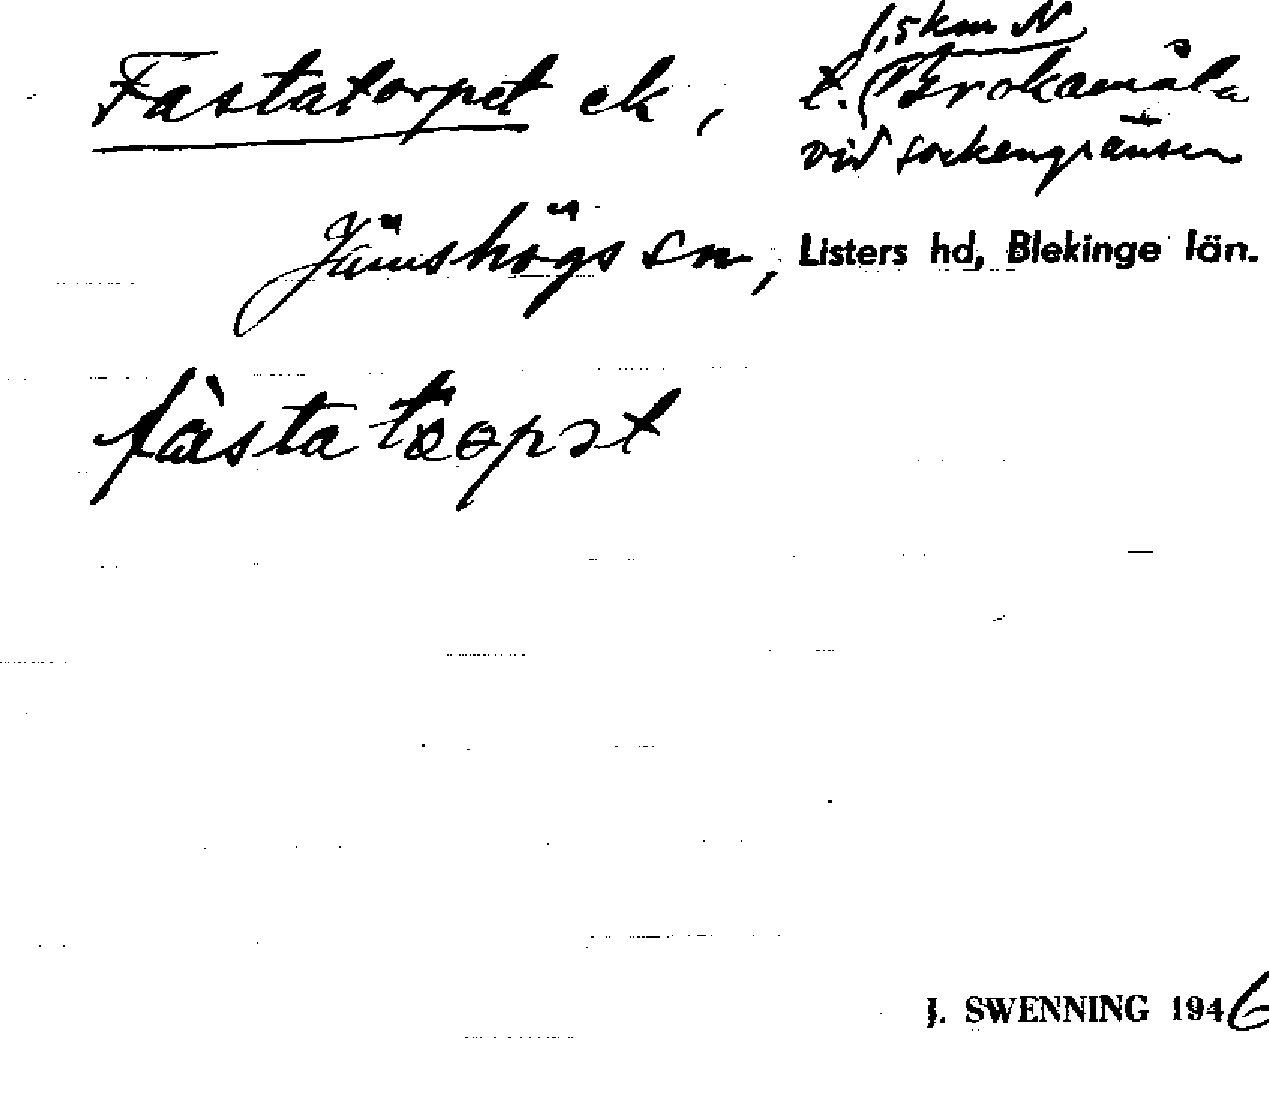 1,5 km N
Fastatorpet ek, t. Brokamåla
vid sockengränsen
Jämshögs sn, Listers hd, Blekinge län.
fàsta
J. SWENNING 1946